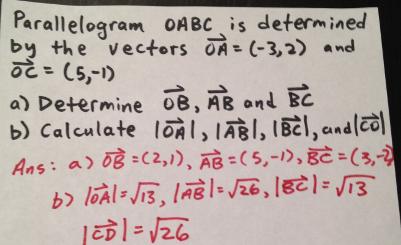 Parallelogram OABC is determined
by the vectors \(\overrightarrow{OA}\) = (-3,2) and
\(\overrightarrow{OC}\) = (5,-1)
a) Determine \(\overrightarrow{OB}\), \(\overrightarrow{AB}\) and \(\overrightarrow{BC}\)
b) Calculate |\(\overrightarrow{OA}\)|, |\(\overrightarrow{AB}\)|, |\(\overrightarrow{BC}\)|, and |\(\overrightarrow{CO}\)|
Ans: a) \(\overrightarrow{OB}\) = (2,1), \(\overrightarrow{AB}\) = (5,-1), \(\overrightarrow{BC}\) = (3,-2)
b) |\(\overrightarrow{OA}\)| = √13, |\(\overrightarrow{AB}\)| = √26, |\(\overrightarrow{BC}\)| = √13
|\(\overrightarrow{CD}\)| = √26